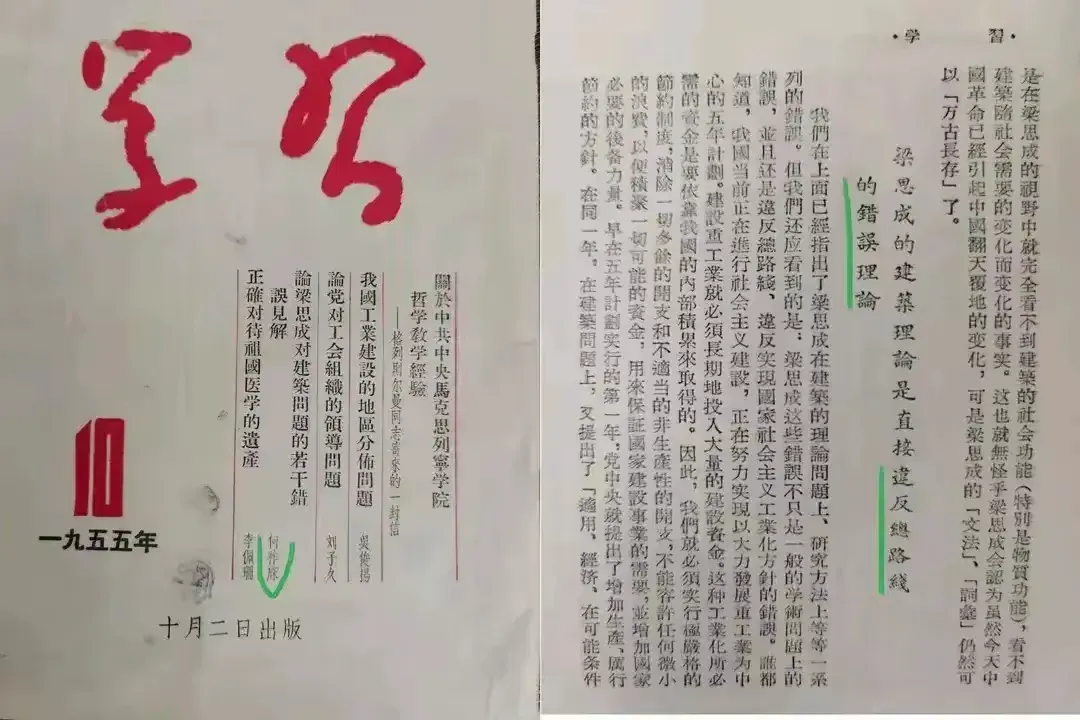 学习
關於中共中央馬克思列寧学院
哲学教学經驗
——格列則尔曼同志寄來的一封信
我國工業建設的地區分佈問題 吳俊揚
論党对工会組織的領導問題 刘子久
論梁思成对建築問題的若干錯
誤見解 何祚庥
正確对待祖國医学的遺產 李佩珊
10
一九五五年
十月二日出版
·学 習·
是在梁思成的視野中就完全看不到建築的社会功能(特別是物質功能),看不到
建築隨社会需要的变化而变化的事实。这也就無怪乎梁思成会認为虽然今天中
國革命已經引起中國翻天覆地的变化,可是梁思成的「文法」、「詞彙」仍然可
以「万古長存」了。
梁思成的建築理論是直接違反總路綫
的錯誤理論
我們在上面已經指出了梁思成在建築的理論問題上、研究方法上等等一系
列的錯誤。但我們还应看到的是:梁思成这些錯誤不只是一般的学術問題上的
錯誤,並且还是違反總路綫、違反实現國家社会主义工業化方針的錯誤。誰都
知道,我國当前正在進行社会主义建設,正在努力实現以大力發展重工業为中
心的五年計劃。建設重工業就必須長期地投入大量的建設資金。这种工業化所必
需的資金是要依靠我國的內部積累來取得的。因此,我們就必須实行極嚴格的
節約制度,消除一切多餘的開支和不適当的非生產性的開支,不能容許任何微小
的浪費,以便積聚一切可能的資金,用來保証國家建設事業的需要,並增加國家
必要的後备力量。早在五年計劃实行的第一年,党中央就提出了增加生產、厲行
節約的方針。在同一年,在建築問題上,又提出了「適用、經济、在可能条件